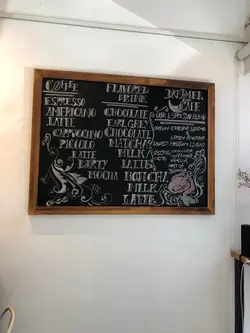 COFFEE
ESPRESSO
AMERICANO
LATTE
CAPPUCCINO
PICCOLO
LATTE
DIRTY
MOCHA
FLAVORED
DRINK
CHOCOLATE
EARL GREY
CHOCOLATE
MATCHA
MILK
LATTE
HOJICHA
MILK
LATTE
DREAMER
CAFE
OUR ESPRESSO BLEND
ROAST MEDIUM LIGHT
TASTING
NOTE